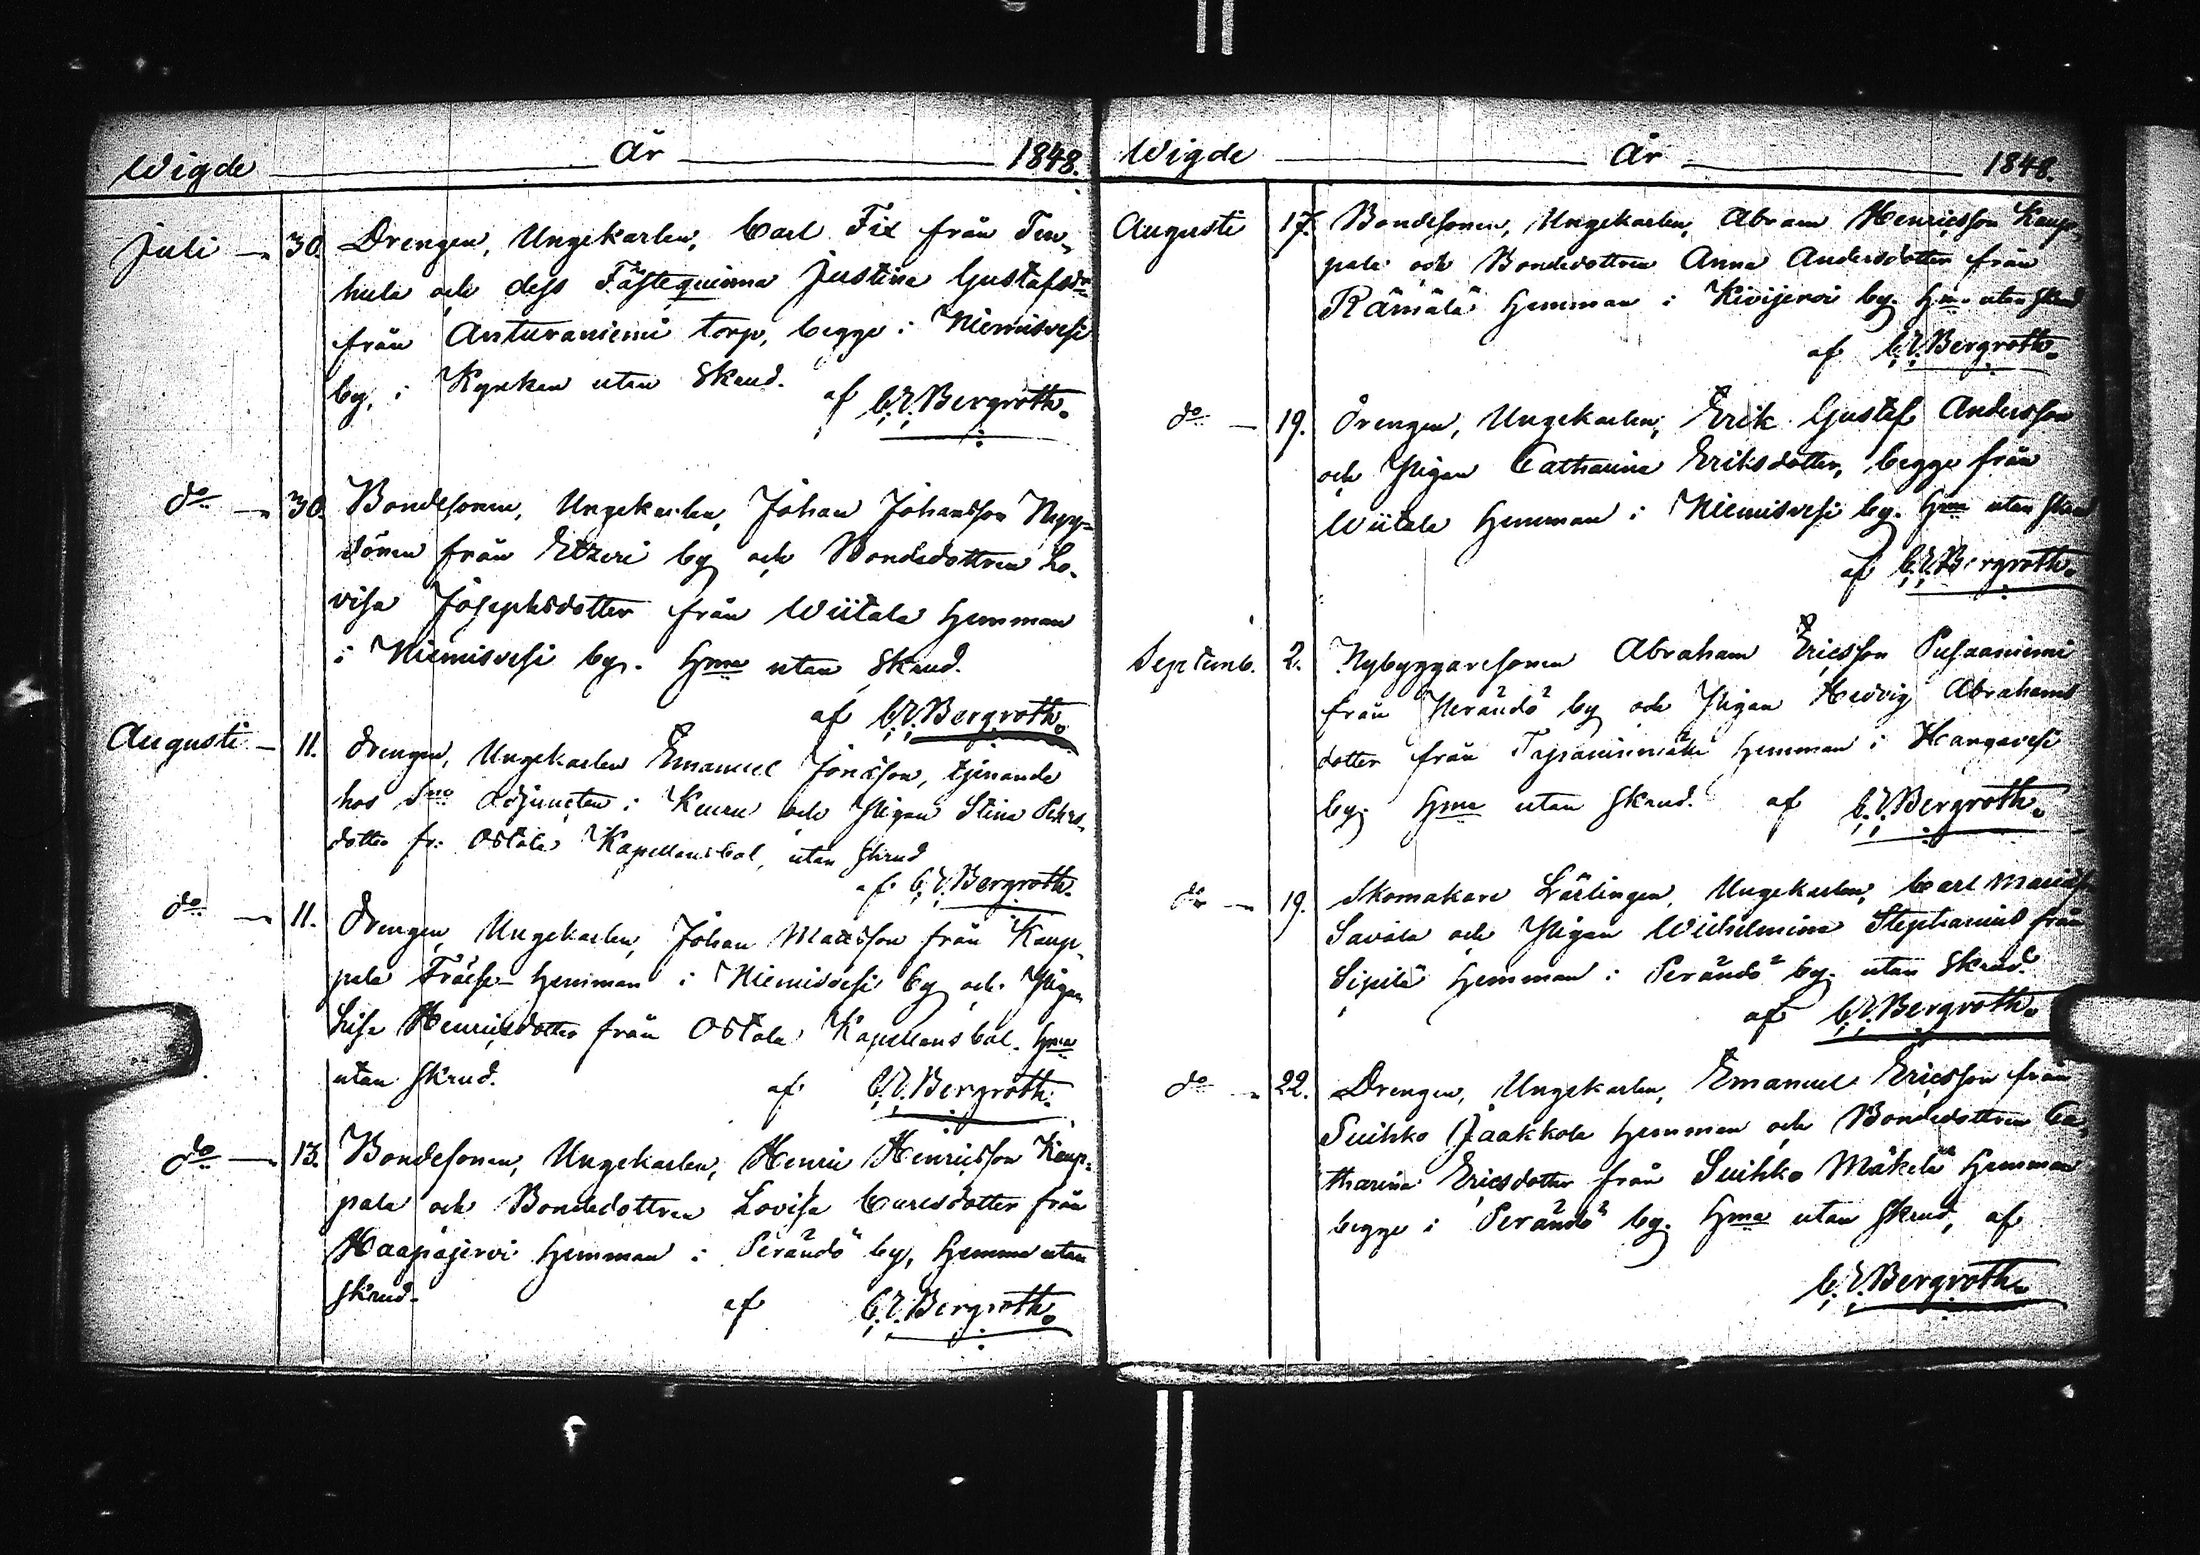 Wigde År 1848.
Juli 30. Drengen, Ungekarlen, Carl Fix från Ten-
hula och dess Fästequinna Justina Gustafsdr
från Anturaniemi torp, begge i Niemisvesi
by, i Kyrkan utan Skrud.
af C. E. Bergroth.
do 30. Bondesonen, Ungekarlen, Johan Johansson Nyy-
sönen från Etzeri by och Bondedottren Lo-
visa Josephsdotter från Wiitala Hemman
i Niemisvesi by. Hma utan Skrud.
af C. E. Bergroth.
Augusti 11. Drengen, Ungekarlen Emanuel Jonasson, tjenande
hos Sno Adjuncten i Keuru och Pigan Stina Peters-
dotter fr. Ostola Kapellansbol, utan Skrud
af C. E. Bergroth.
do 11. Drengen, Ungekarlen, Johan Mattsson från Kaup-
pala Hemman i Niemisvesi by och Pigan
Lisa Henricsdotter från Ostola Kapellansbol. Hma
utan Skrud.
af C. E. Bergroth.
do 13. Bondesonen, Ungekarlen, Henric Henricsson Kaup-
pala och Bondedottren Lovisa Carlsdotter från
Haapajervi Hemman i Perändö by, Hemma utan
Skrud.
af C. E. Bergroth.
Wigde År 1848.
Augusti 17. Bondesonen, Ungekarlen, Abram Henricsson Kaup-
pala och Bondedottren Anna Andersdotter från
Rämälä Hemman i Kivijervi by. Hma utan Skrud
af C. E. Bergroth.
do 19. Drengen, Ungekarlen, Erik Gustaf Andersson
och Pigan Catharina Eriksdotter, begge från
Wiitala Hemman i Niemisvesi by. Hma utan Skrud
af C. E. Bergroth.
Septemb. 2. Nybyggaresonen Abraham Ericsson Pusaaniemi
från Perändö by och Pigan Hedvig Abrahams
dotter från Tapaninmäki Hemman i Hangavesi
by. Hma utan Skrud. af C. E. Bergroth.
do 19. Skomakare Lärlingen, Ungekarlen, Carl
Savola och Pigan Wilhelmina Stephanus från
Sipilä Hemman i Perändö by. utan Skrud.
af C. E. Bergroth.
do 22. Drengen, Ungekarlen, Emanuel Ericsson från
Suihko Jaakkola Hemman och Bondedottren Ca-
tharina Ericsdotter från Suihko Mäkelä Hemman
begge i Perändö by. Hma utan Skrud, af
C. E. Bergroth.